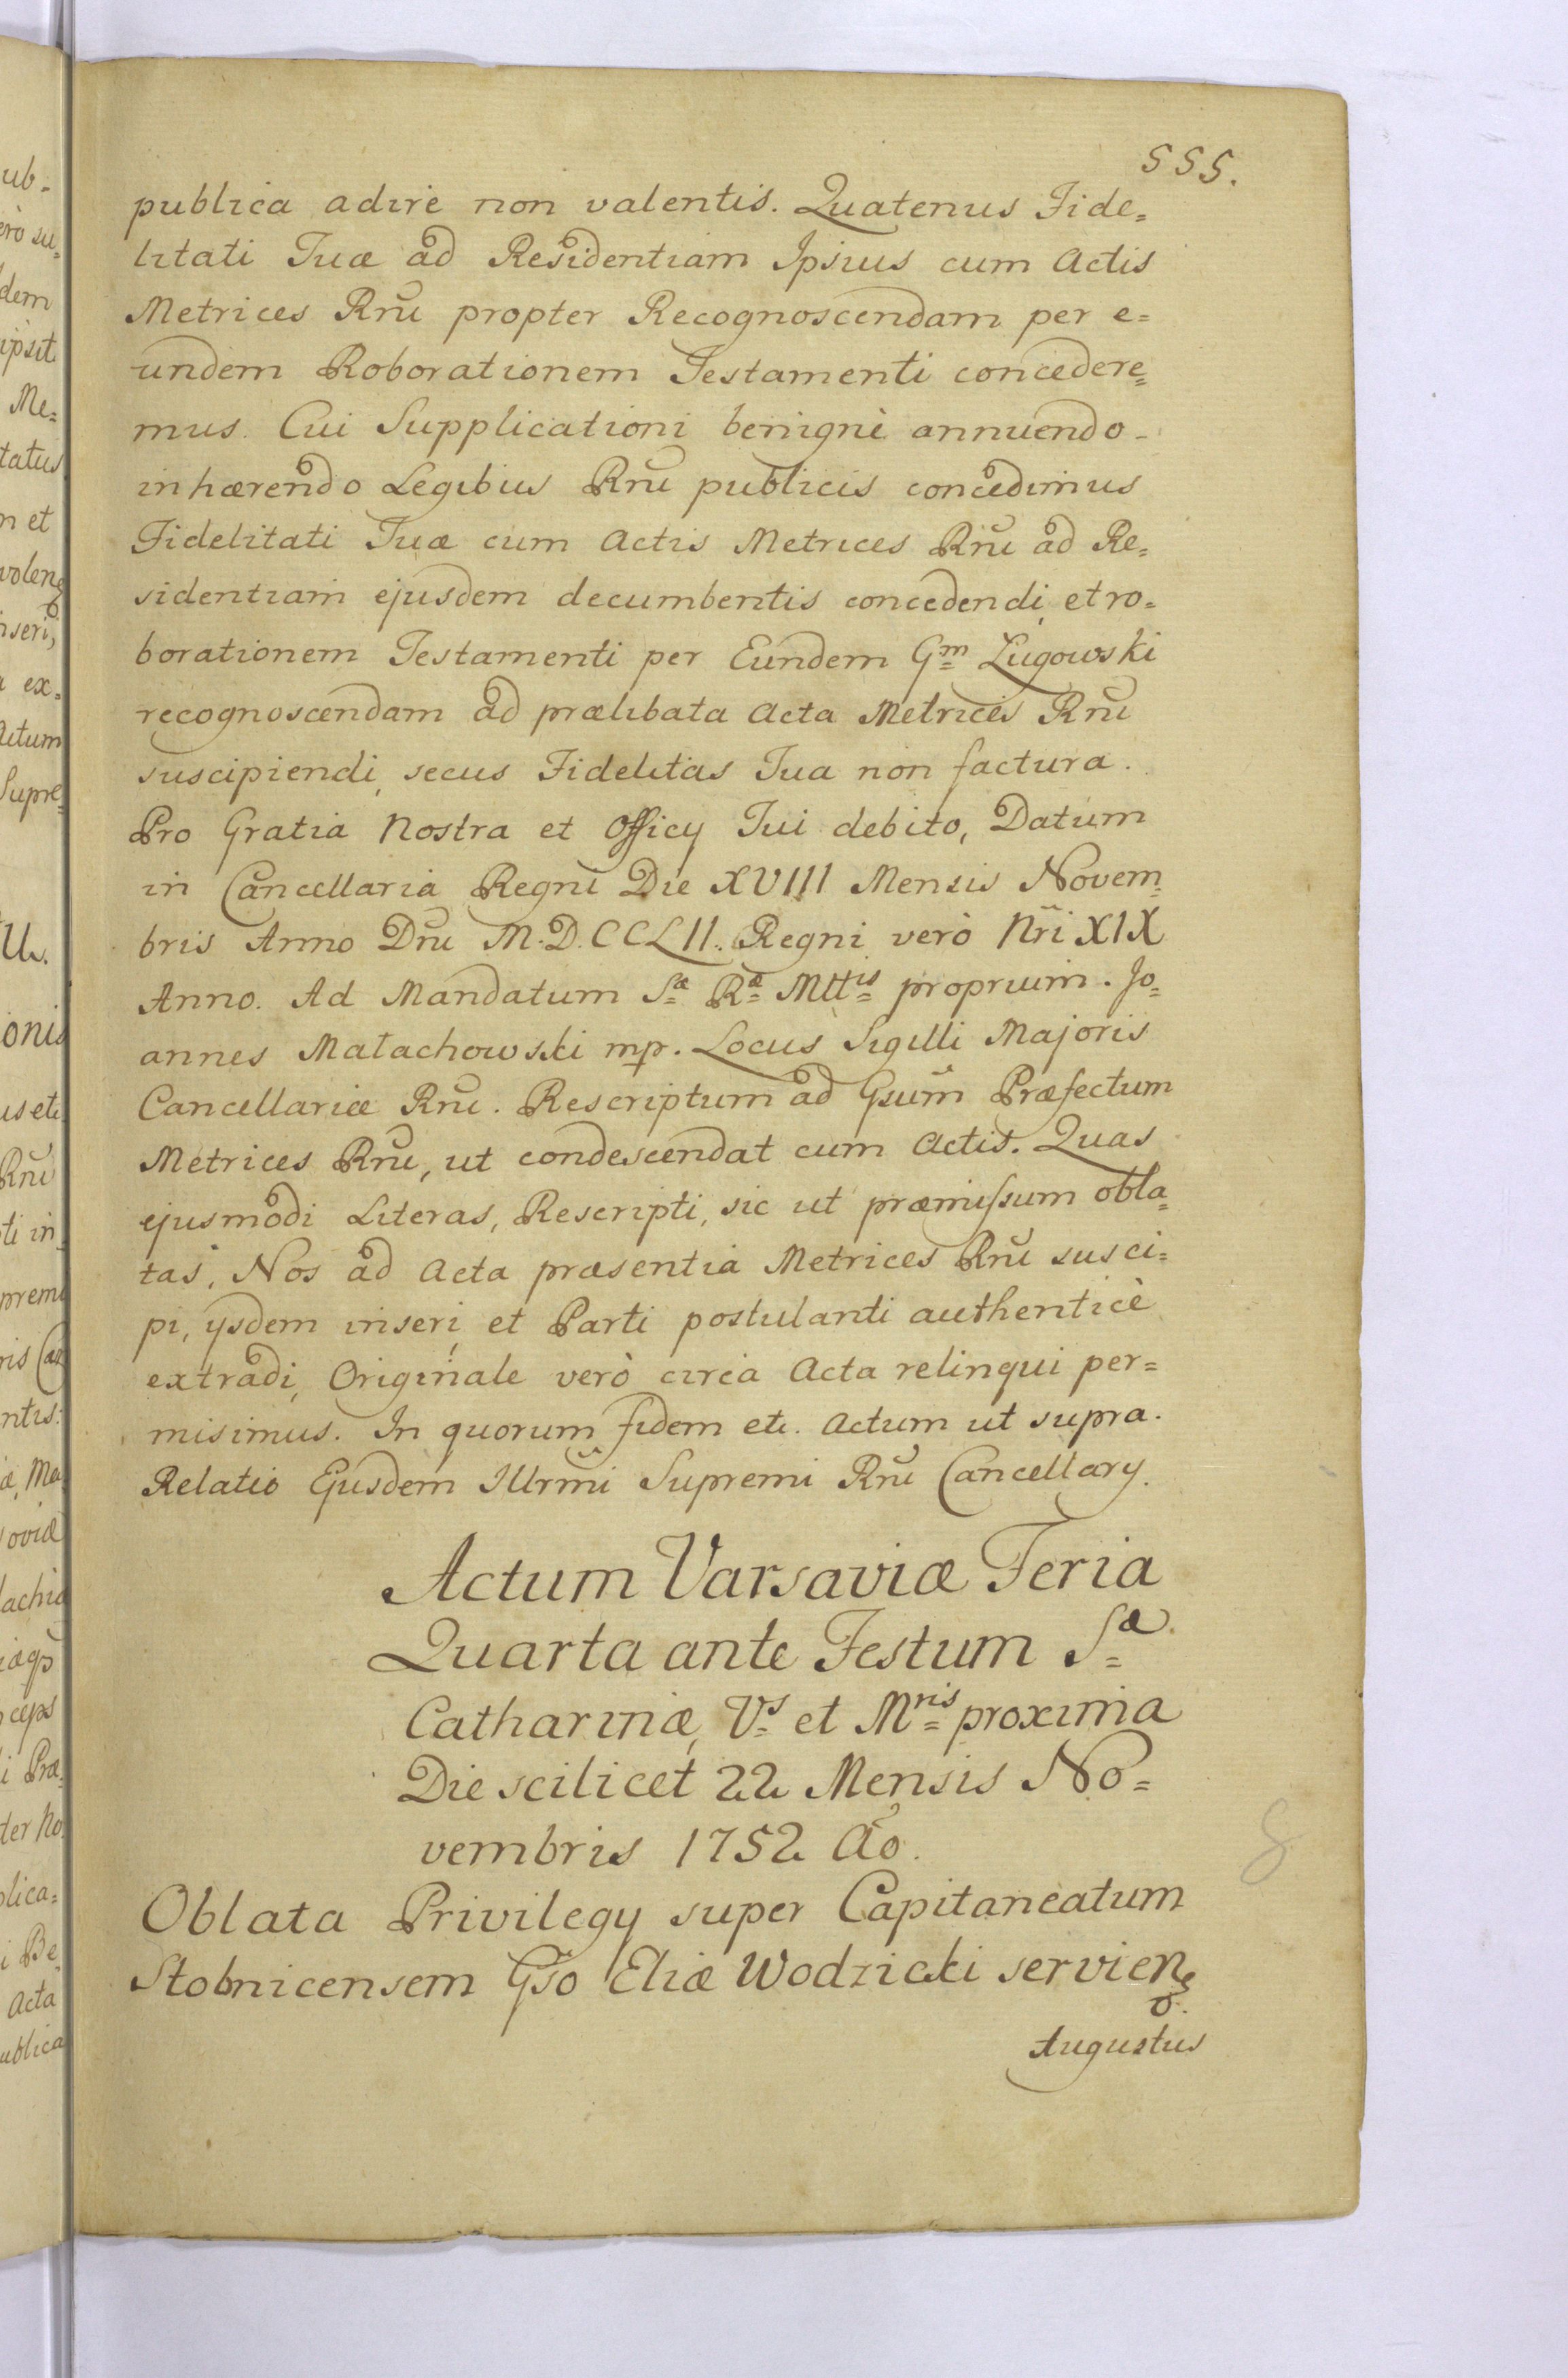 555.
publica adire non valentis. Quatenus Fide=
litati Tuæ ad Residentiam Ipsius cum Actis
Metrices Rnĩ propter Recognoscendam per e=
undem Roborationem Testamenti concedere=
mus. Cui Supplicationi benignè annuendo
inhærendo Legibus Rnĩ publicis concedimus
Fidelitati Tuæ cum Actis Metrices Rnĩ ad Re=
sidentiam ejusdem decumbentis concedendi, et ro=
borationem Testamenti per Eundem Gm Lugowski
recognoscendam ad prælibata Acta Metrices Rnĩ
suscipiendi, secus Fidelitas Tua non factura.
Pro Gratia Nostra et Officy Tui debito, Datum
in Cancellaria Regni Die XVIII Mensis Novem=
bris Anno Dnĩ M.D.CCLII. Regni verò Nrĩ XIX
Anno. Ad Mandatum Sæ Ræ Mttis proprium. Jo=
annes Małachowski mp. Locus Sigilli Majoris
Cancellariæ Rnĩ. Rescriptum ad Gsum̃ Præfectum
Metrices Rnĩ, ut condescendat cum Actis. Quas
ejusmodi Literas, Rescripti, sic ut præmissum obla=
tas, Nos ad Acta præsentia Metrices Rnĩ susci=
pi, ysdem inseri, et Parti postulanti authenticè
extradi, Originale verò circa Acta relinqui per=
misimus. In quorum fidem etc. Actum ut supra.
Relatio Ejusdem Illrmĩ Supremi Rnĩ Cancellary.
Actum Varsaviæ Feria
Quarta ante Festum Sæ
Catharinæ, Vs et Mris proxima
Die scilicet 22 Mensis No=
vembris 1752 Ão.
Oblata Privilegy super Capitaneatum
Stobnicensem Gso Eliæ Wodzicki servien
Augustus